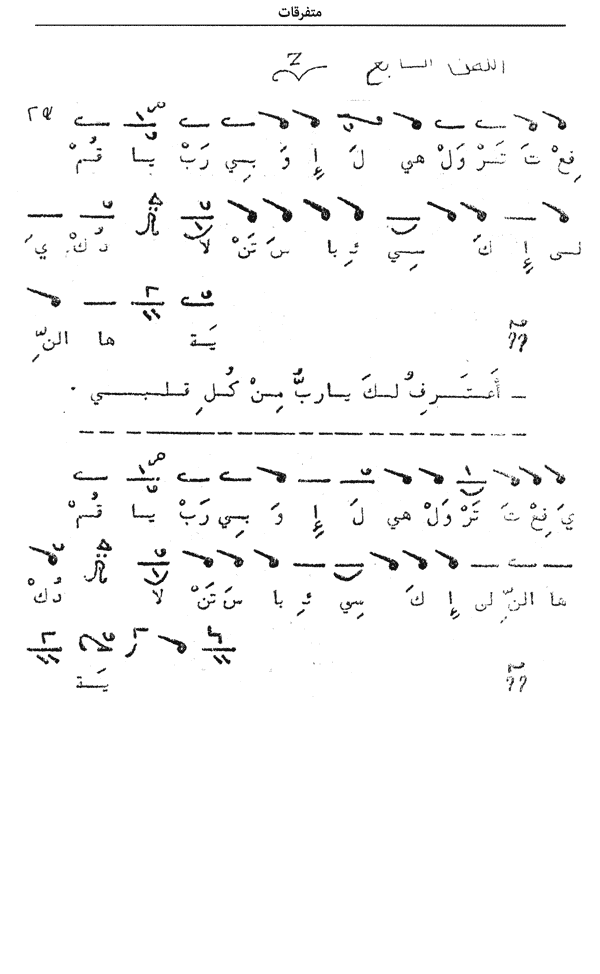 متفرقات
اللحن السابع Z
قُمْ يـا رَبْ بـي وَ إِ لَ هي وَلْ تَـرْ تَ فِعْ
يَ دُكْ. لا تَنْ سَ با ئِـ سِي كَ إِ لـى
النِّ ها يَـة
ـ أَعْتَـرِفُ لـكَ يـا ربُّ مِـنْ كُـلِ قـلـبـي .
قُمْ يـا رَبْ بـي وَ إِ لَ هي وَلْ تَرْ تَ فِعْ يَ
دُكْ لا تَنْ سَ با ئِـ سِي كَ إِ لى النِّ ها
يَـة